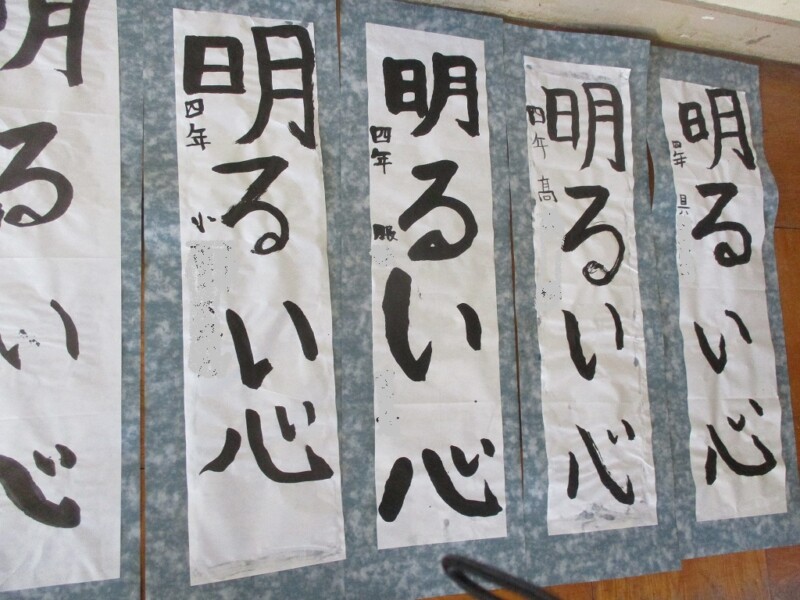 明るい心
四年 具
明るい心
四年 高
明るい心
四年 服
明るい心
四年 小
明るい心